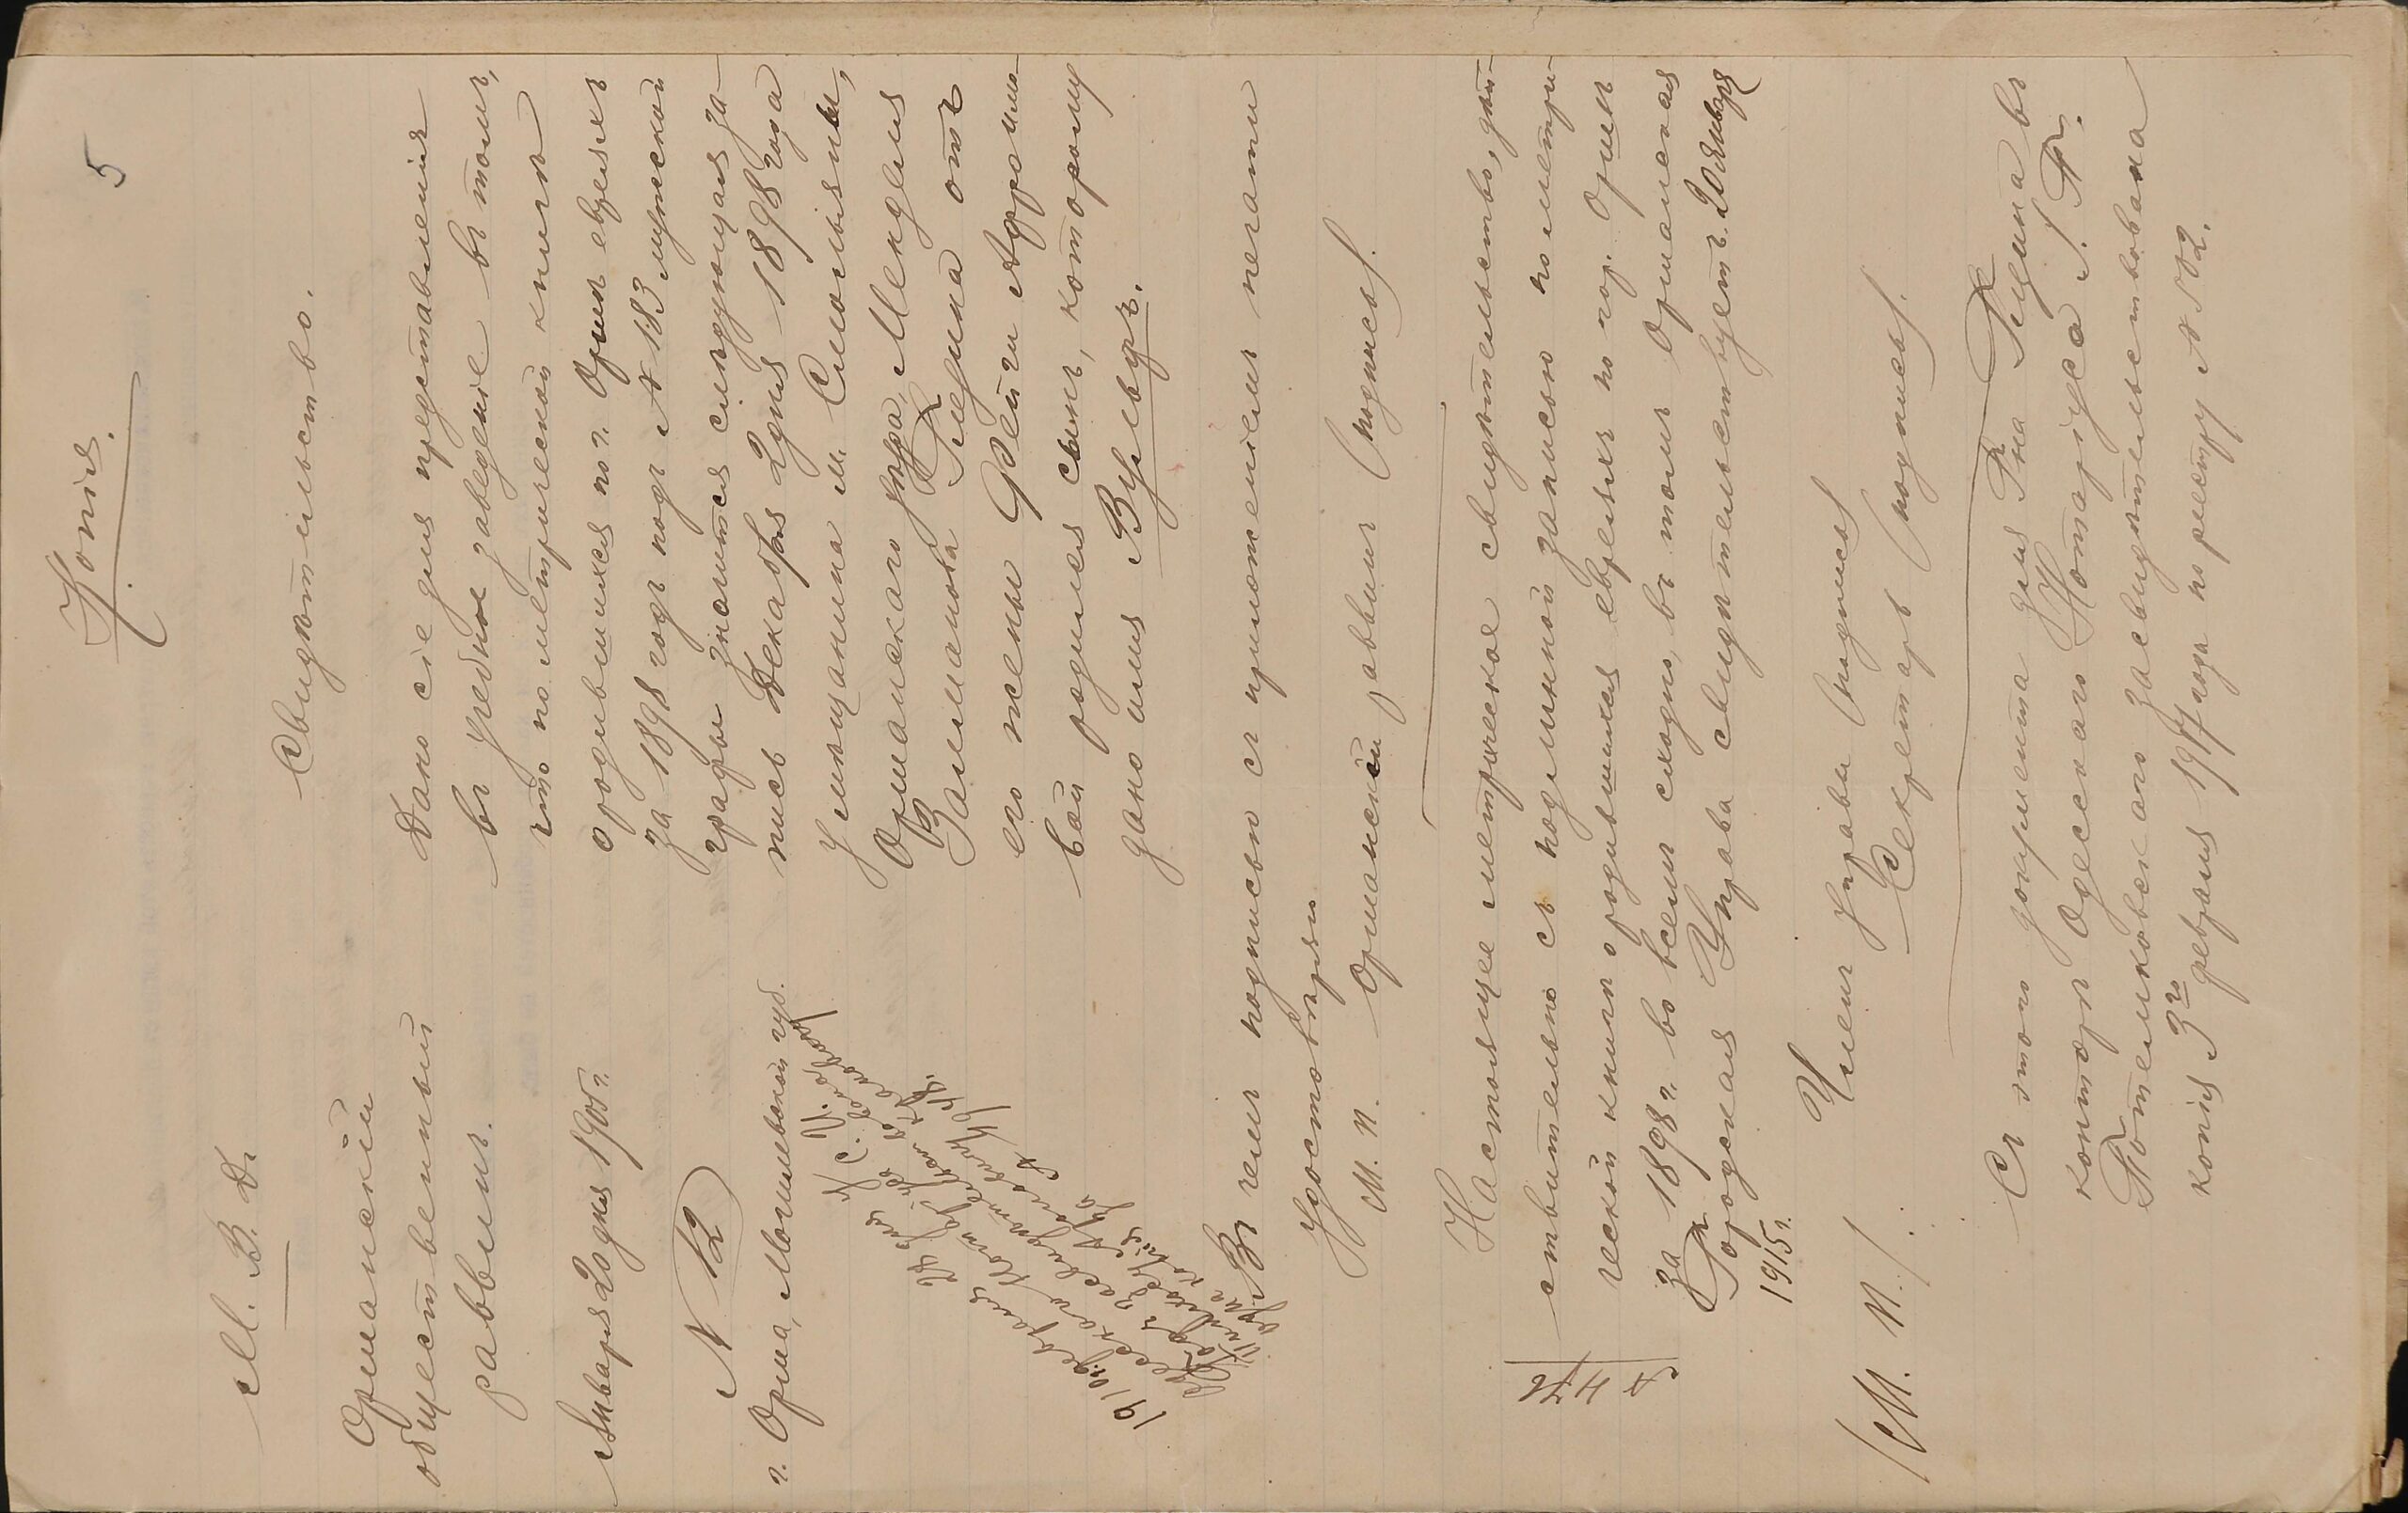 5
Копія.
М. В. Д.
Оршанскій
общественный
раввинъ.
Января 20 дня 1905 г.
№ 12
г. Орша, Могилевской губ.
Свидѣтельство.
Дано сіе для представленія
въ учебное заведеніе въ томъ,
что по метрической книгѣ
о родившихся по г. Оршѣ евреяхъ
за 1898 годъ подъ № 183 мужской
графы значится слѣдующая за-
пись Декабря 2 дня 1898 года
у мѣщанина м. Смольяны,
Оршанскаго уѣзда, Менделя
Залманова Гецина отъ
его жены Фейги Афроимо-
вой родился сынъ, которому
дано имя Вульфъ.
Въ чемъ подписью съ приложеніемъ печати
удостовѣряю
М. П. Оршанскій раввинъ (подпись).
Настоящее метрическое свидѣтельство, дѣй-
ствительно съ подлинной записью по метри-
ческой книгѣ о родившихся евреяхъ по гор. Оршѣ
за 1898 г. во всемъ сходно, въ томъ Оршанская
Городская Управа свидѣтельствуетъ. 20 Января
1915 г.
Членъ Управы (подпись)
Секретарь (подпись).
(М. П.).
Съ этого документа для Г-на Гецина въ
конторѣ Одесскаго Нотаріуса Г. Г.
Потемковскаго засвидѣтельствована
копія 3го февраля 1917 года по реестру № 582.